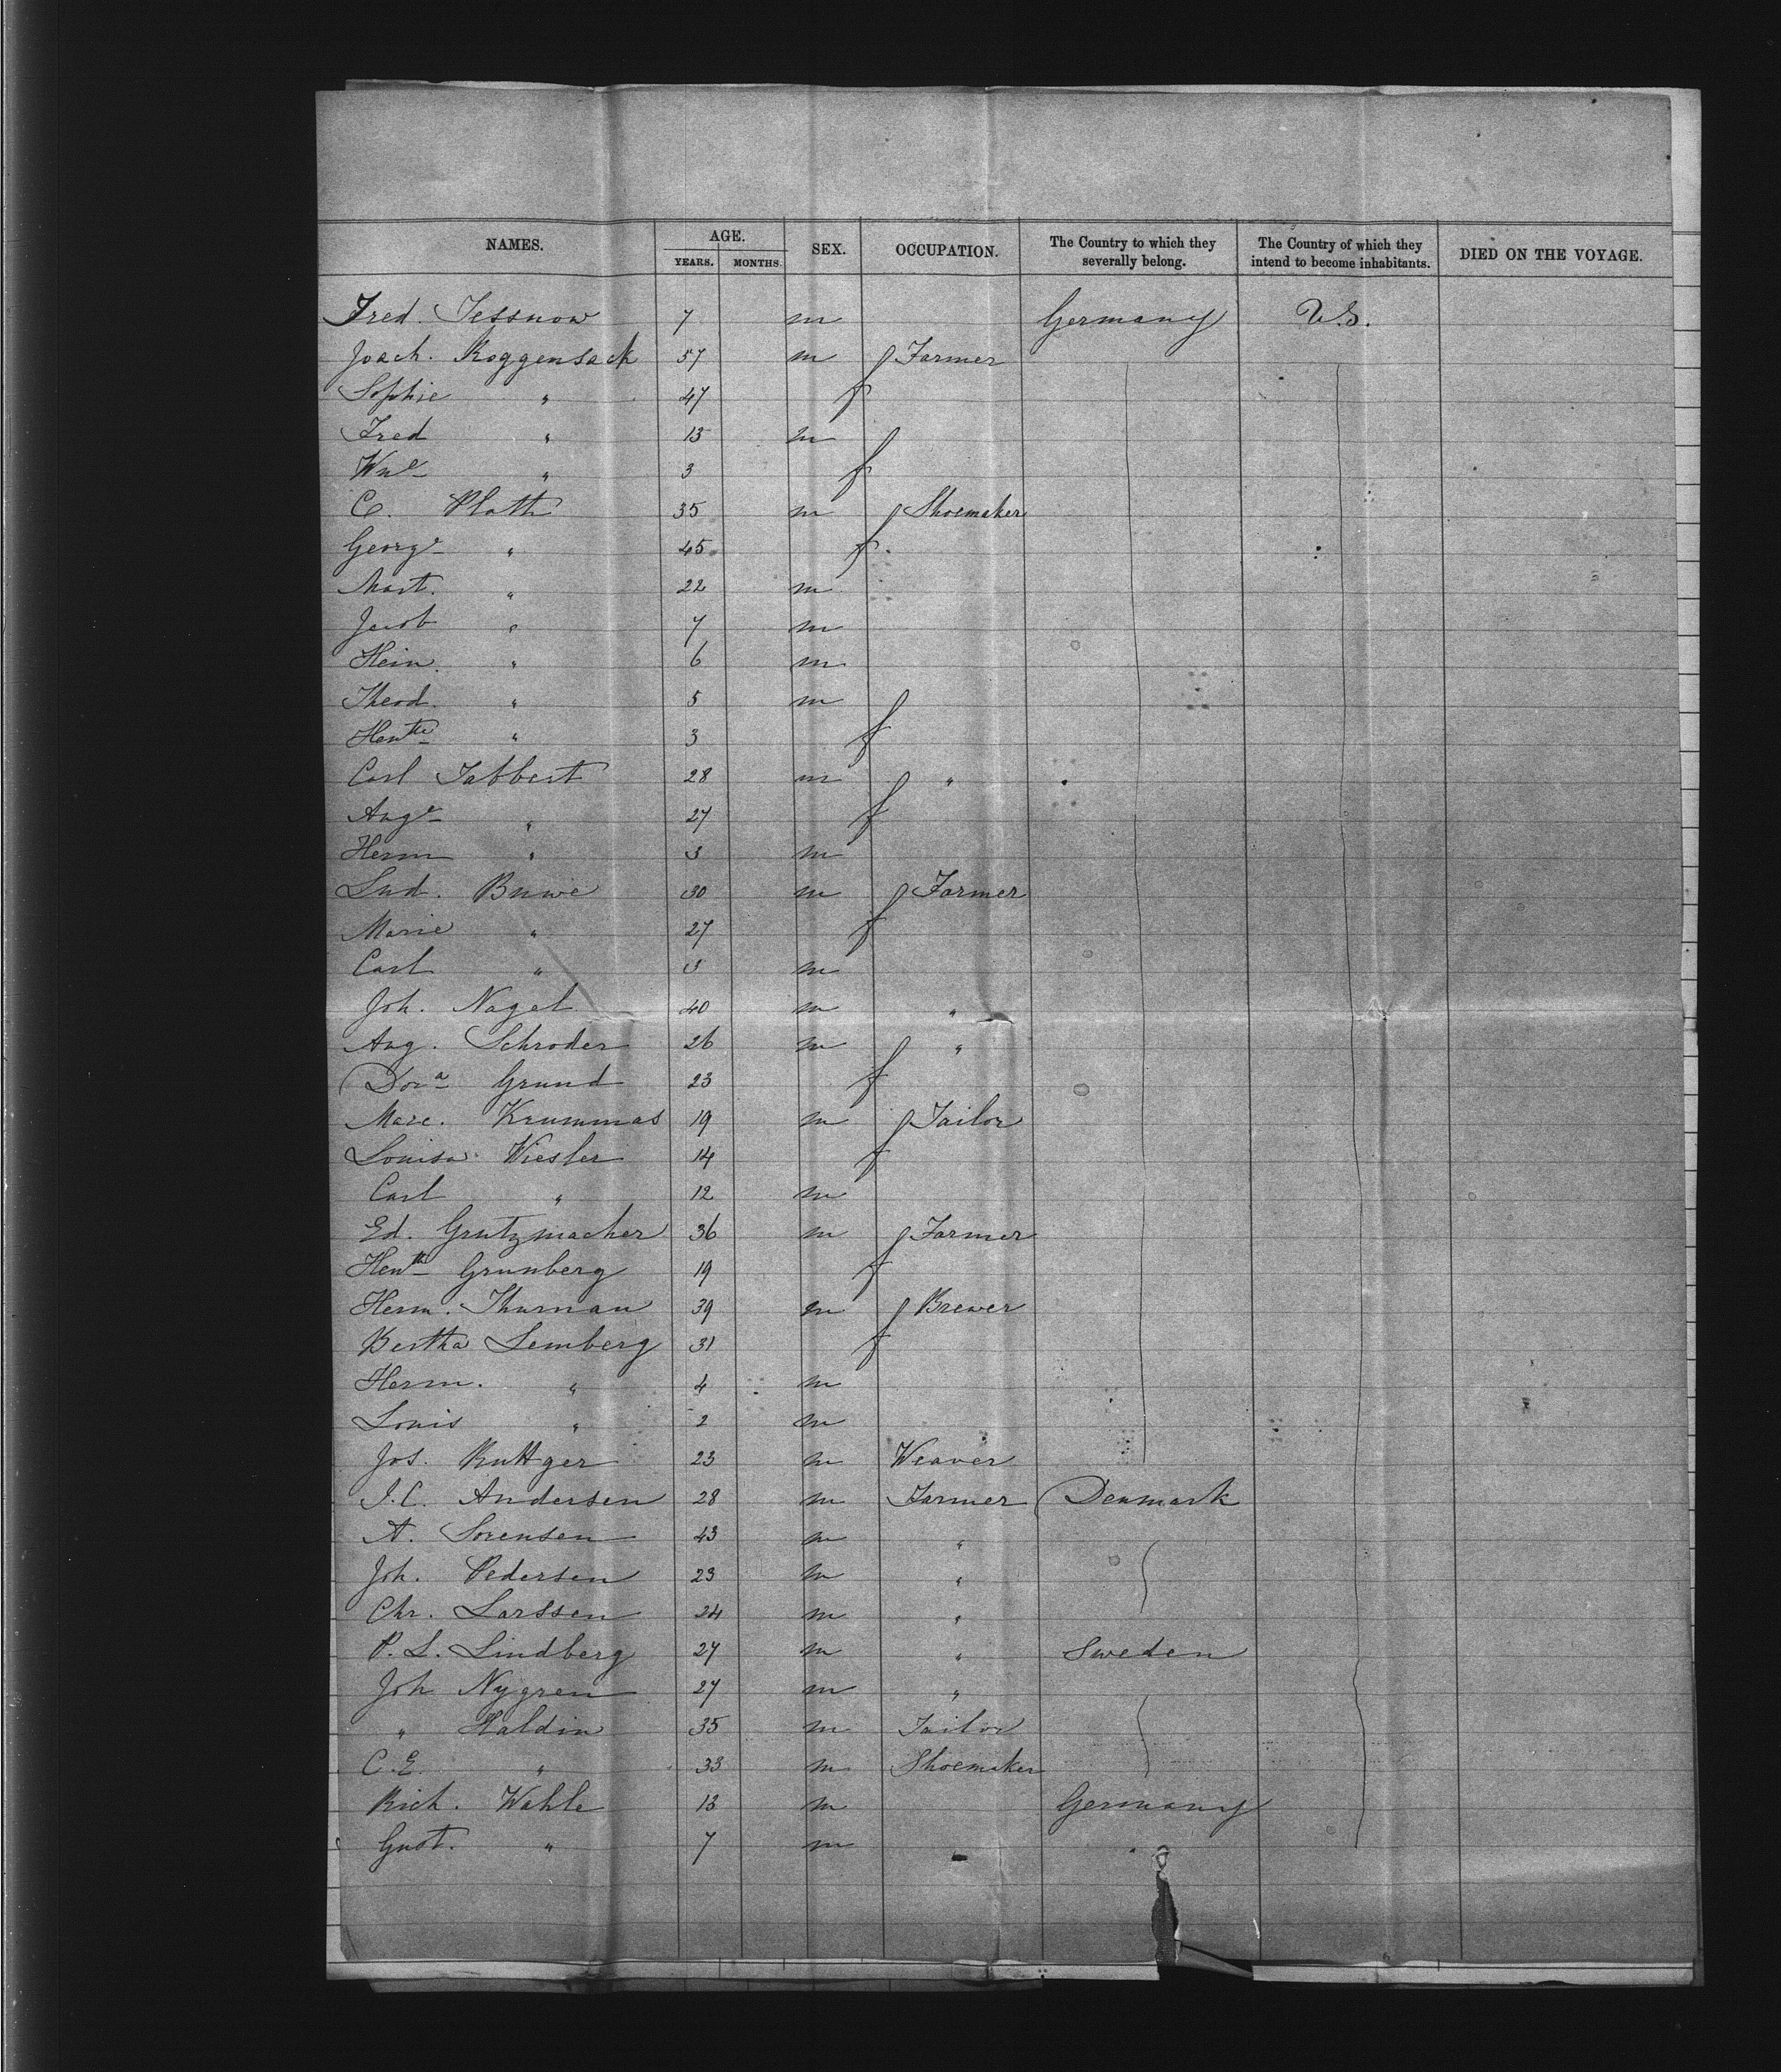 NAMES. AGE. SEX. OCCUPATION. The Country to which they severally belong. The Country of which they intend to become inhabitants. DIED ON THE VOYAGE.
YEARS. MONTHS.
Fred. Tessnow 7 m Germany U.S.
Joach. Roggensack 57 m Farmer
Sophie " 47 f
Fred " 13 m
Wne " 3 f
C. Plath 35 m Shoemaker
George " 45 f
Mart. " 22 m
Jacob " 7 m
Hein. " 6 m
Theod. " 5 m
Hentte " 3 f
Carl Tabbert 28 m "
Auge " 27 f
Herm " 3 m
Lud. Buwe 30 m Farmer
Marie " 27 f
Carl " 3 m
Joh. Nagel 40 m "
Aug. Schroder 26 m "
Dora Grund 23 f
Marc. Krummas 19 m Tailor
Louisa Wiesler 14 f
Carl " 12 m
Ed. Grutzmacher 36 m Farmer
Hentte Grunberg 19 f
Herm. Thurnau 39 m Brewer
Bertha Lemberg 31 f
Herm. " 4 m
Louis " 2 m
Jos. Ruttger 23 m Weaver
J.C. Andersen 28 m Farmer Denmark
A. Sorensen 43 m "
Joh. Pedersen 23 m "
Chr. Larssen 24 m "
P. L. Lindberg 27 m " Sweden
Joh Nygren 27 m "
" Haldin 35 m Tailor
C.E. " 33 m Shoemaker
Rich. Wahle 13 m Germany
Gust. " 7 m